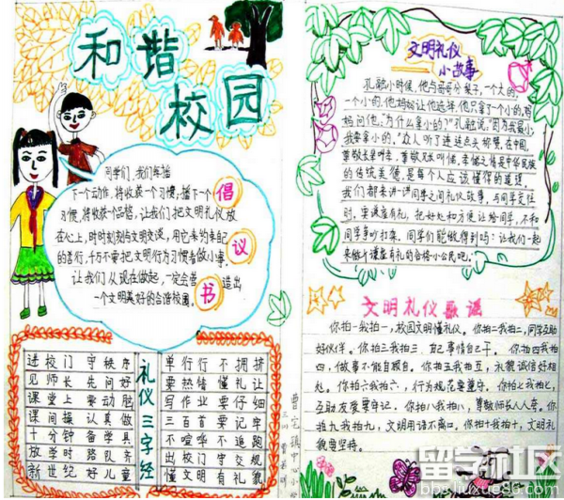 和谐
校园
同学们，我们每播
下一个动作，将收获一个习惯；播下一个
习惯，将收获一个品格，让我们把文明礼仪放
在心上，时时刻刻与文明交谈，用它来约束自己
的言行，千万不要把文明行为习惯看做小事。
让我们从现在做起，一定会营造出
一个文明美好的合谐校园。
倡
议
书
礼仪三字经
进校门 守秩序
见师长 先问好
课堂上 要动脑
课间操 认真做
十分钟 备学具
放学时 路队齐
新世纪 好儿童
单行行 不拥挤
要热情 懂礼让
写作业 要仔细
三百首 要记牢
不喧哗 不追跑
出校门 守交规
懂文明 有礼貌
文明礼仪
小故事
孔融小时候，他与哥哥分梨子，一个大的，
一个小的，他妈妈让他选择，他只拿了一个小的，妈
妈问他：为什么拿小的？"孔融说："因为我最小，
我要拿小的。"众人听了连连点头称赞，在中国，
的传统美德，是每个人应该懂得的道理。
我们都来讲一讲同学之间礼仪故事，与同学交往
时，要谦虚有礼，把好处和方便让给同学，不和
同学争吵打架。同学们能做得到吗？让我们一起
来做个谦虚有礼的合格小公民吧。
文明礼仪歌谣
你拍一我拍一，校园文明懂礼仪。你拍二我拍二，同学互助
好伙伴。你拍三我拍三，自己事情自己干。你拍四我拍
四，做事不能自顾自。你拍五我拍五，礼貌诚信好相
处。你拍六我拍六，行为规范要遵守。你拍七我拍七，
互助友爱要牢记。你拍八我拍八，尊敬师长人人夸。你拍
九我拍九，文明用语不离口。你拍十我拍十，文明礼
貌要坚持。
留学社区
bbs.liuxue86.com